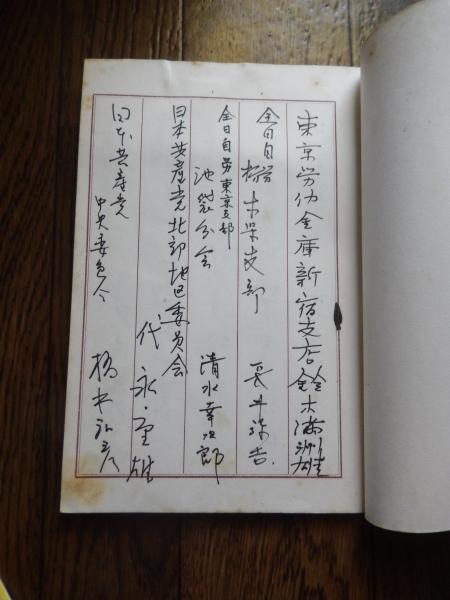 東京労仂金庫新宿支店 鈴木満洲雄
全日自労 栃木県支部
全日自労東京支部
池袋分会 清水幸次郎
日本共産党北部地区委員会
代 永
日本共産党
中央委員会